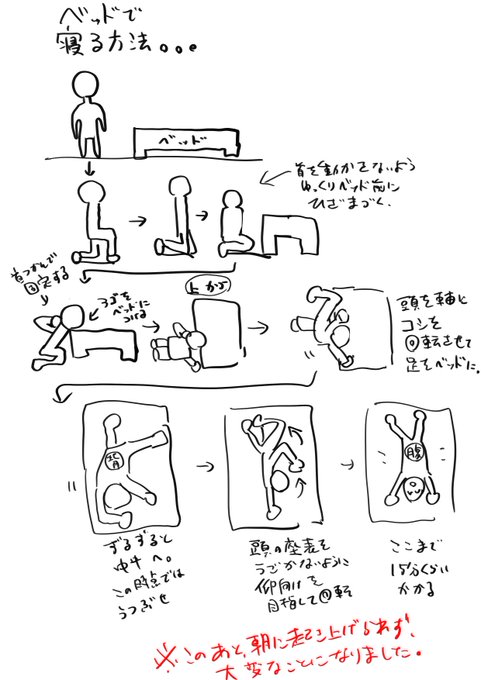 ベッドで
寝る方法。。。
ベッド
首を動かさないよう
ゆっくりベッド前に
ひざまづく。
首つかんで
固定する
つぶを
ベッドに
つける
上から
頭を軸に
コシを
回転させて
足をベッドに。
背
腹
ずるずると
中央へ。
この時点では
うつぶせ
頭の座表を
うごかないように
仰向けを
目指して回転
ここまで
15分くらい
かかる
※このあと、朝に起き上げられず、
大変なことになりました。